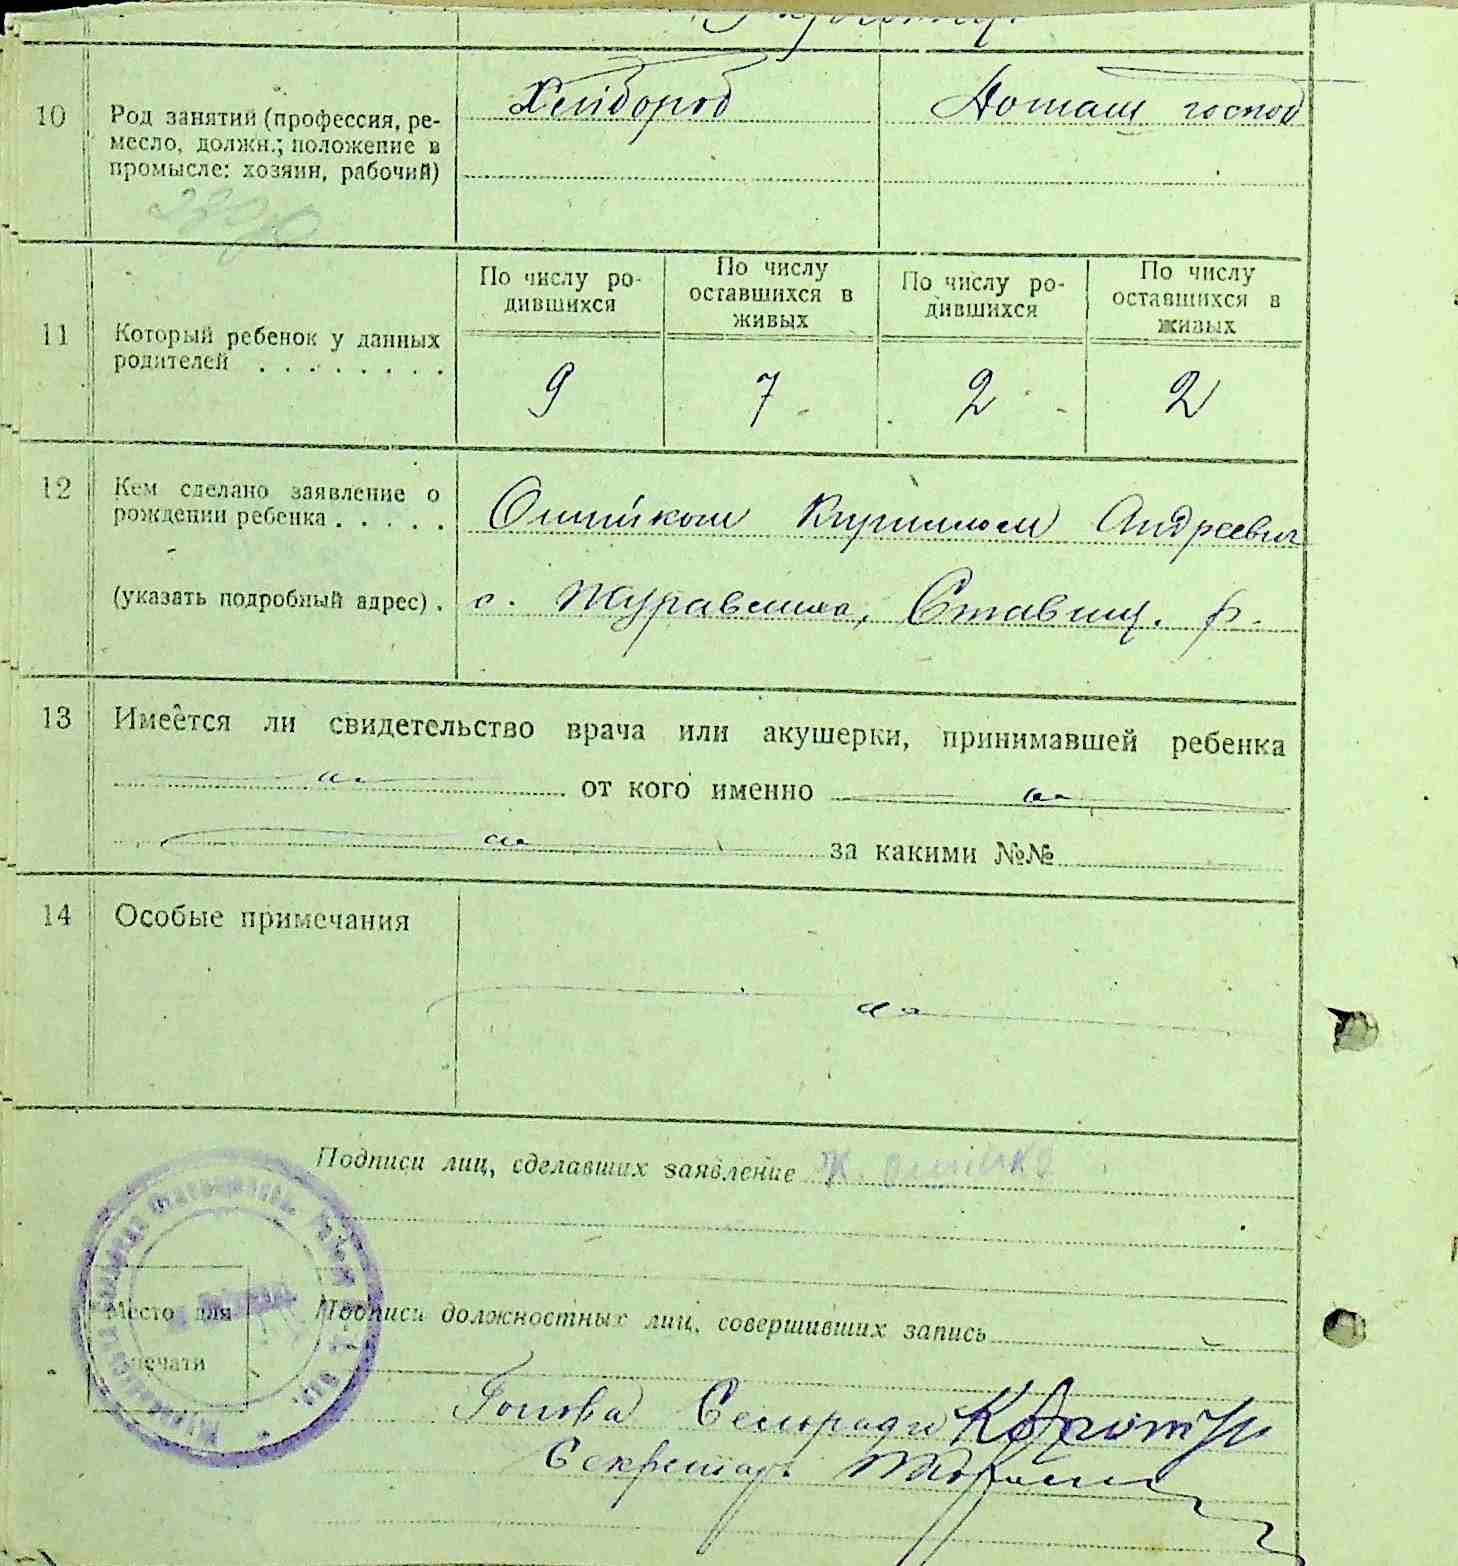 10 Род занятий (профессия, ре-
месло, должн.; положение в
промысле: хозяин, рабочий)
Хлібороб Домаш господ
11 Который ребенок у данных
родителей . . . . . . . .
По числу ро-
дившихся
По числу
оставшихся в
живых
По числу ро-
дившихся
По числу
оставшихся в
живых
9 7 2 2
12 Кем сделано заявление о
рождении ребенка . . . . .
Олійком Кирилом Андреевич
(указать подробный адрес) .
с. Журавлиха, Ставищ. р.
13 Имеется ли свидетельство врача или акушерки, принимавшей ребенка
от кого именно
за какими №№
14 Особые примечания
Подписи лиц, сделавших заявление К. Олійко
Место для
печати
Подписи должностных лиц, совершивших запись
Голова Сельради
Секретарь